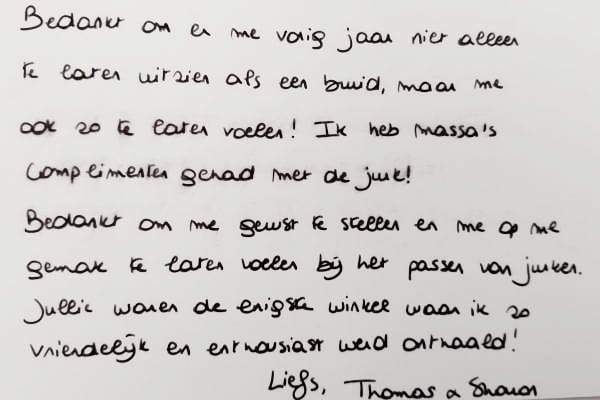 Bedankt om er me vorig jaar niet alleen
te laten uitzien als een bruid, maar me
ook zo te laten voelen! Ik heb massa's
complimenten gehad met de jurk!
Bedankt om me gerust te stellen en me op me
gemak te laten voelen bij het passen van jurken.
Jullie waren de enigste winkel waar ik zo
vriendelijk en enthousiast werd onthaald!
Liefs, Thomas & Sharon